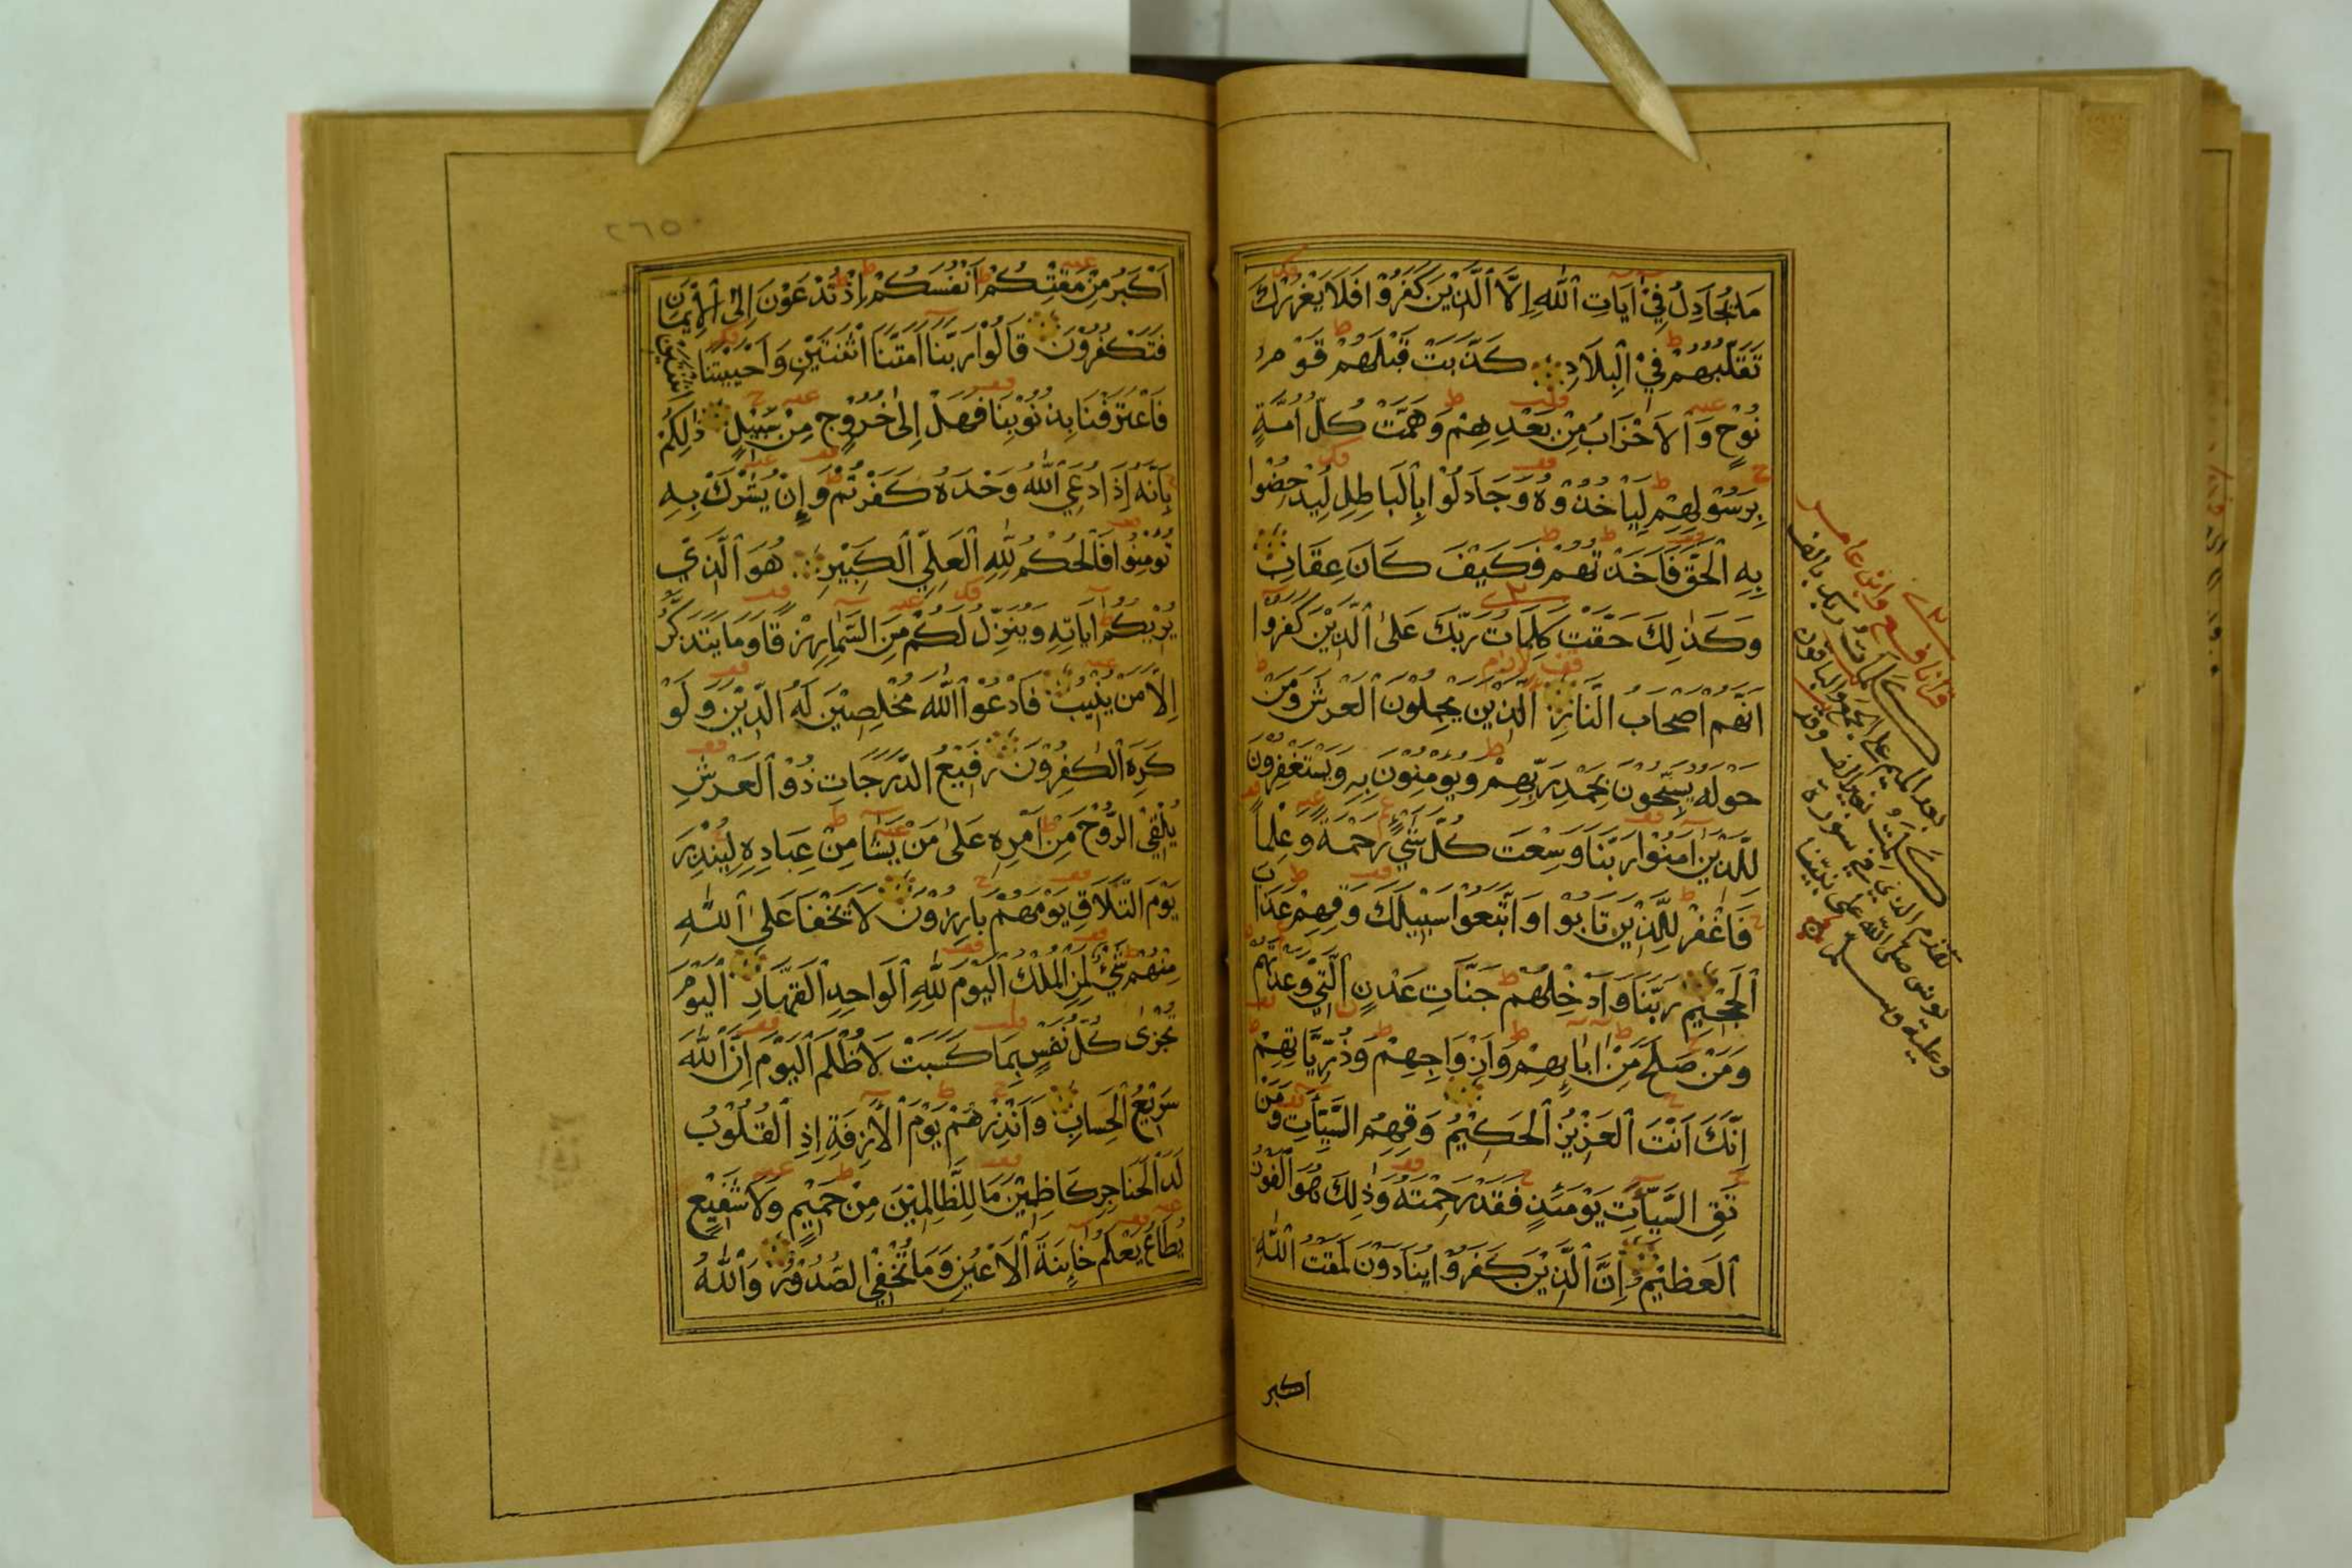 مَا يُجَادِلُ فِيْ اٰيَاتِ ٱللّٰهِ إِلَّا ٱلَّذِيْنَ كَفَرُوْا فَلَا يَغْرُرْكَ
تَقَلُّبُهُمْ فِيْ ٱلْبِلَادِ كَذَّبَتْ قَبْلَهُمْ قَوْمُ
نُوْحٍ وَٱلْأَحْزَابُ مِنْ بَعْدِهِمْ وَهَمَّتْ كُلُّ اُمَّةٍ
بِرَسُوْلِهِمْ لِيَأْخُذُوْهُ وَجَادَلُوْا بِٱلْبَاطِلِ لِيُدْحِضُوْا
بِهِ ٱلْحَقَّ فَأَخَذْتُهُمْ فَكَيْفَ كَانَ عِقَابِ
وَكَذٰلِكَ حَقَّتْ كَلِمَاتُ رَبِّكَ عَلَى ٱلَّذِيْنَ كَفَرُوْا
اَنَّهُمْ اَصْحَابُ النَّارِ الَّذِيْنَ يَحْمِلُوْنَ الْعَرْشَ وَمَنْ
حَوْلَهُ يُسَبِّحُوْنَ بِحَمْدِ رَبِّهِمْ وَيُؤْمِنُوْنَ بِهِ وَيَسْتَغْفِرُوْنَ
لِلَّذِيْنَ اٰمَنُوْا رَبَّنَا وَسِعْتَ كُلَّ شَيْءٍ رَحْمَةً وَعِلْماً
فَاغْفِرْ لِلَّذِيْنَ تَابُوْا وَاتَّبَعُوْا سَبِيْلَكَ وَقِهِمْ عَذَابَ
ٱلْجَحِيْمِ رَبَّنَا وَأَدْخِلْهُمْ جَنَّاتِ عَدْنٍ الَّتِيْ وَعَدْتَهُمْ
وَمَنْ صَلَحَ مِنْ اٰبَائِهِمْ وَأَزْوَاجِهِمْ وَذُرِّيَّاتِهِمْ
اِنَّكَ اَنْتَ ٱلْعَزِيْزُ ٱلْحَكِيْمُ وَقِهِمُ السَّيِّئَاتِ وَمَنْ
تَقِ السَّيِّئَاتِ يَوْمَئِذٍ فَقَدْ رَحِمْتَهُ وَذٰلِكَ هُوَ ٱلْفَوْزُ
ٱلْعَظِيْمُ إِنَّ ٱلَّذِيْنَ كَفَرُوْا يُنَادَوْنَ لَمَقْتُ ٱللّٰهِ
اكبر
قرا نافع وابن عامر
كلمات ربك بالف
بعد الميم على الجمع والباقون
كلمت بغير الف وقد
تقدم الذي في سورة
يونس صلى الله على نبينا
وعليه وسلم
٢٦٥
اَكْبَرُ مِنْ مَقْتِكُمْ اَنْفُسَكُمْ اِذْ تُدْعَوْنَ اِلَى ٱلْإِيْمَانِ
فَتَكْفُرُوْنَ قَالُوْا رَبَّنَا اَمَتَّنَا اثْنَتَيْنِ وَاَحْيَيْتَنَا اثْنَتَيْنِ
فَاعْتَرَفْنَا بِذُنُوْبِنَا فَهَلْ إِلٰى خُرُوْجٍ مِنْ سَبِيْلٍ ذٰلِكُمْ
بِاَنَّهُ إِذَا دُعِيَ ٱللّٰهُ وَحْدَهُ كَفَرْتُمْ وَإِنْ يُشْرَكْ بِهِ
تُؤْمِنُوْا فَالْحُكْمُ لِلّٰهِ ٱلْعَلِيِّ ٱلْكَبِيْرِ هُوَ ٱلَّذِيْ
يُرِيْكُمْ اٰيَاتِهِ وَيُنَزِّلُ لَكُمْ مِنَ السَّمَاءِ رِزْقًا وَمَا يَتَذَكَّرُ
اِلَّا مَنْ يُنِيْبُ فَادْعُوْا ٱللّٰهَ مُخْلِصِيْنَ لَهُ الدِّيْنَ وَلَوْ
كَرِهَ الْكٰفِرُوْنَ رَفِيْعُ الدَّرَجَاتِ ذُوْ ٱلْعَرْشِ
يُلْقِيْ الرُّوْحَ مِنْ اَمْرِهِ عَلٰى مَنْ يَشَاءُ مِنْ عِبَادِهِ لِيُنْذِرَ
يَوْمَ التَّلَاقِ يَوْمَهُمْ بَارِزُوْنَ لَا يَخْفَا عَلَى ٱللّٰهِ
مِنْهُمْ شَيْءٌ لِمَنِ الْمُلْكُ الْيَوْمَ لِلّٰهِ ٱلْوَاحِدِ ٱلْقَهَّارِ اَلْيَوْمَ
تُجْزٰى كُلُّ نَفْسٍ بِمَا كَسَبَتْ لَا ظُلْمَ ٱلْيَوْمَ إِنَّ ٱللّٰهَ
سَرِيْعُ الْحِسَابِ وَأَنْذِرْهُمْ يَوْمَ ٱلْاٰزِفَةِ إِذِ ٱلْقُلُوْبُ
لَدَا ٱلْحَنَاجِرِ كَاظِمِيْنَ مَا لِلظَّالِمِيْنَ مِنْ حَمِيْمٍ وَلَا شَفِيْعٍ
يُطَاعُ يَعْلَمُ خَائِنَةَ ٱلْاَعْيُنِ وَمَا تُخْفِيْ الصُّدُوْرُ وَٱللّٰهُ